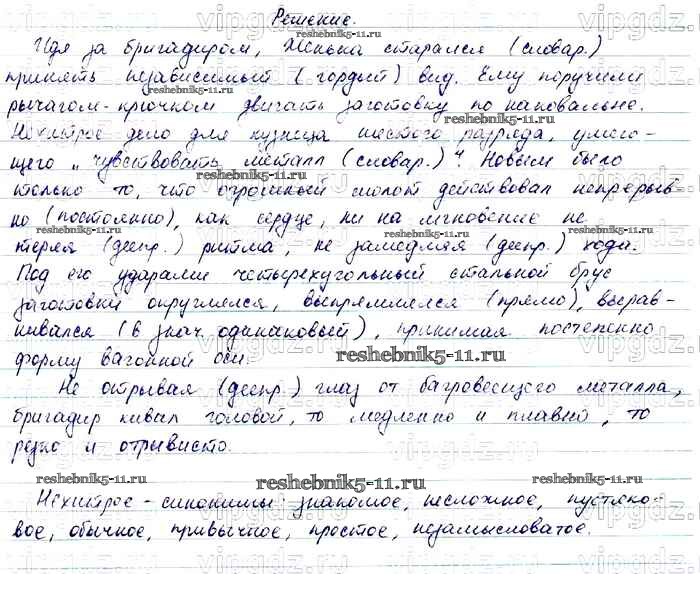 Решение.
Идя за бригадиром, Женька старался (словар.)
принять независимый (гордый) вид. Ему поручили
рычагом-крючком двигать заготовку по наковальне.
Нехитрое дело для кузнеца шестого разряда, умею-
щего „чувствовать металл (словар.)“. Новым было
только то, что огромный молот действовал непрерыв-
но (постоянно), как сердце, ни на мгновение не
теряя (деепр.) ритма, не замедляя (деепр.) хода.
Под его ударами четырехугольный стальной брус
заготовки округлялся, выпрямлялся (прямо), вырав-
нивался (в знач. одинаковый), принимая постепенно
форму вагонной оси.
Не отрывая (деепр.) глаз от багровеющего металла,
бригадир кивал головой, то медленно и плавно, то
резко и отрывисто.
Нехитрое - синонимы: знакомое, несложное, пустяко-
вое, обычное, привычное, простое, незамысловатое.
reshebnik5-11.ru
reshebnik5-11.ru
reshebnik5-11.ru
reshebnik5-11.ru
reshebnik5-11.ru
reshebnik5-11.ru
reshebnik5-11.ru
reshebnik5-11.ru
reshebnik5-11.ru
reshebnik5-11.ru
reshebnik5-11.ru
vipgdz.ru